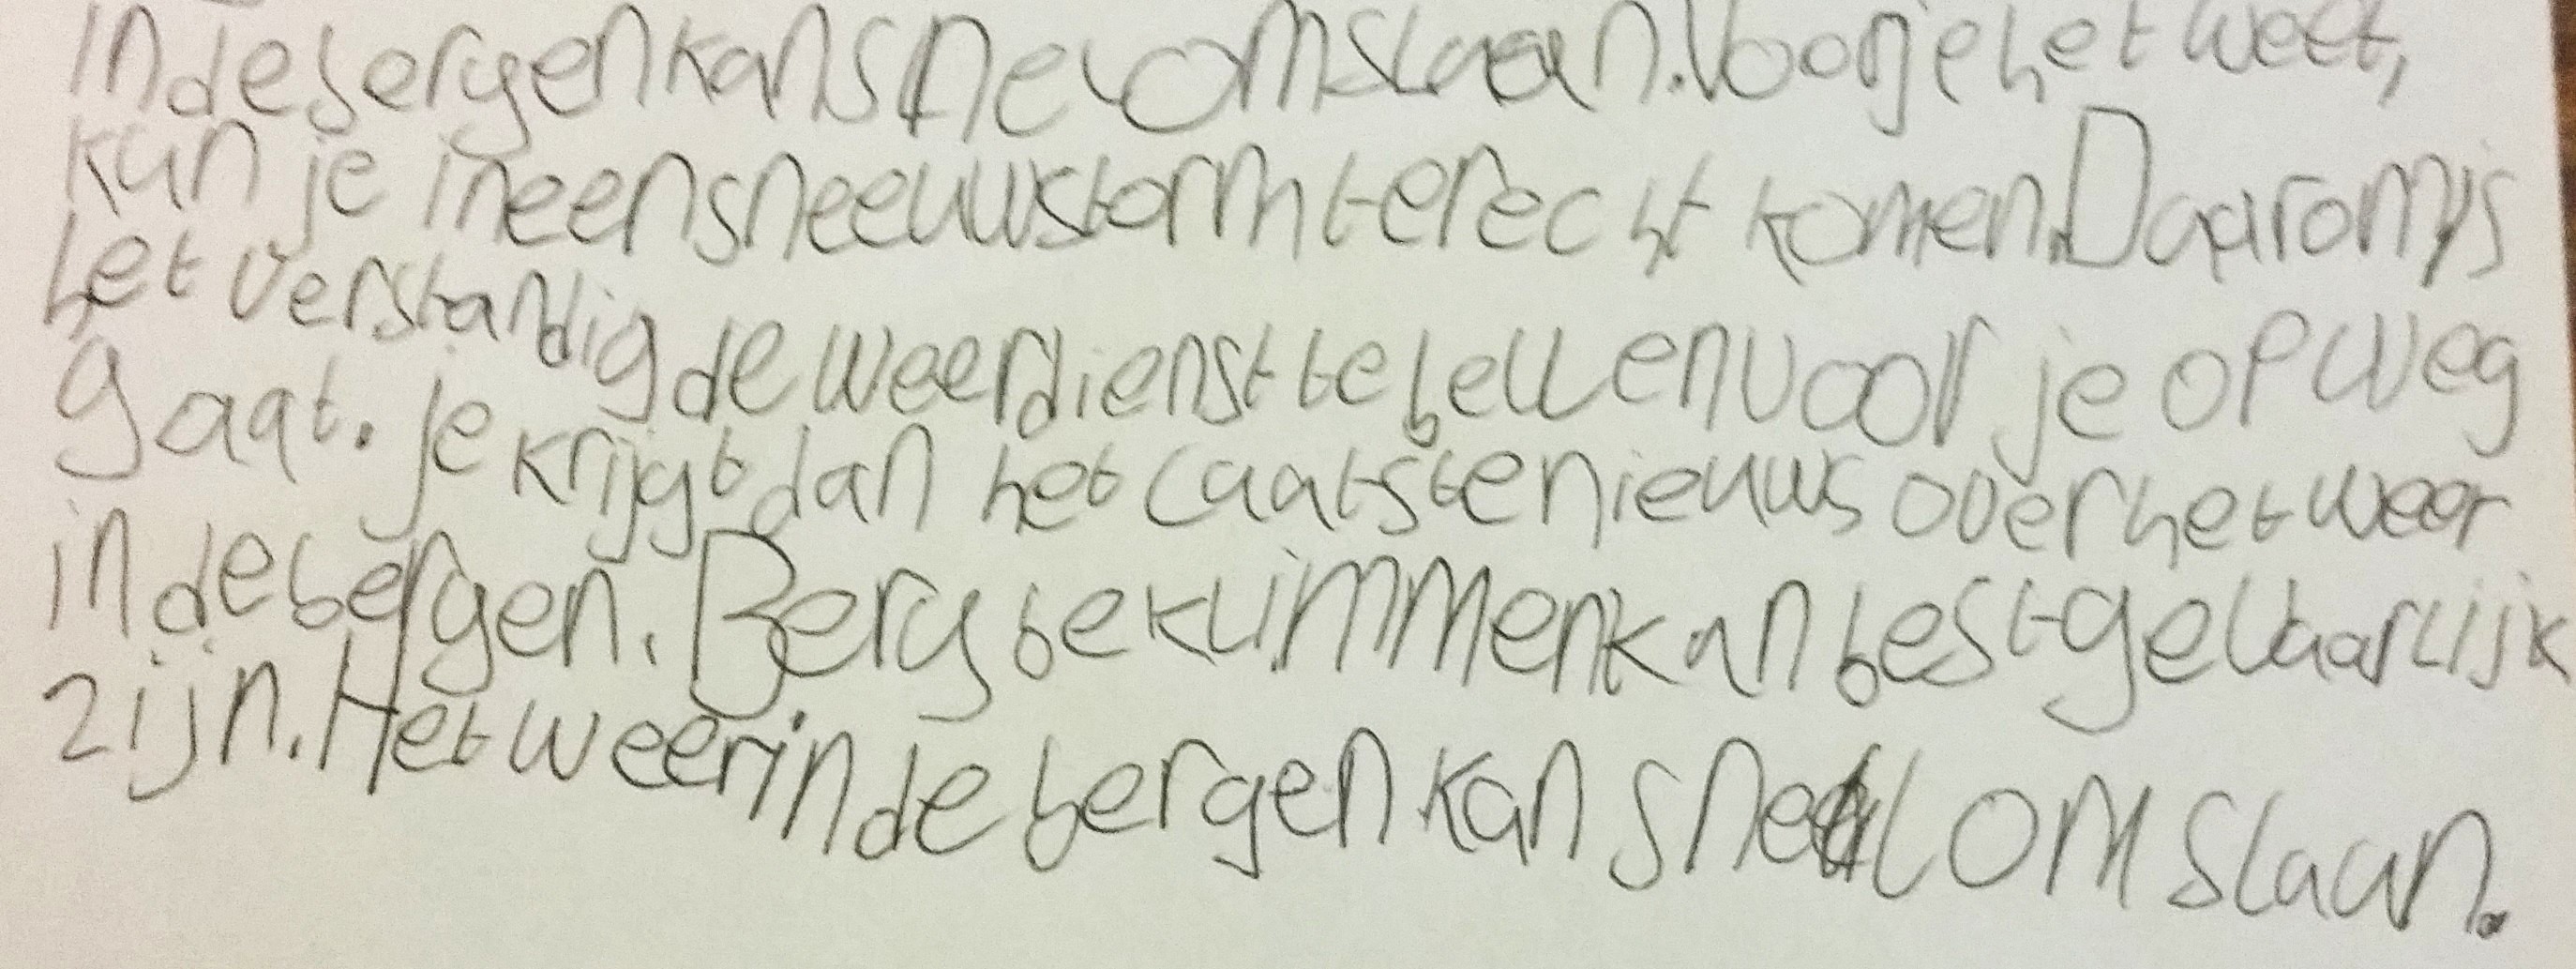 in de bergen kan snel omslaan. Voor je het weet,
kun je in een sneeuwstorm terecht komen. Daarom is
het verstandig de weerdienst te bellen voor je op weg
gaat. je krijgt dan het laatste nieuws over het weer
in de bergen. Berg beklimmen kan best gevaarlijk
zijn. Het weer in de bergen kan snel omslaan.